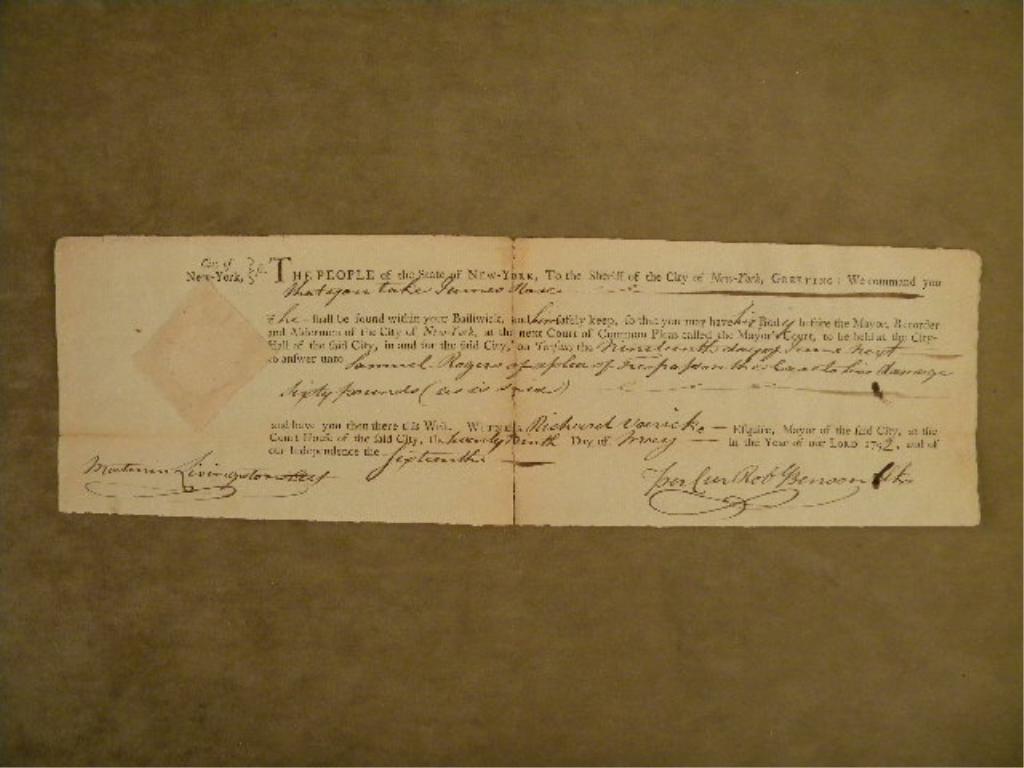 City of
New-York, ss. THE PEOPLE of the State of NEW-YORK, To the Sheriff of the City of New-York, GREETING: We command you
that you take James
if he shall be found within your Bailiwick, and him safely keep, so that you may have his Body before the Mayor, Recorder
and Aldermen of the City of New-York, at the next Court of Common Pleas called the Mayor's Court, to be held at the City-
Hall of the said City, in and for the said City, on Tuesday the Nineteenth day of June next
to answer unto Samuel Rogers of a plea of Trespass on the Case to his damage
Sixty pounds (as is said)
and have you then there this Writ. WITNESS Richard Varick Esquire, Mayor of the said City, at the
Court House of the said City, the twenty Ninth Day of May in the Year of our LORD 1792, and of
our Independence the Sixteenth
Livingston Att Per Cur Rob Benson Clk